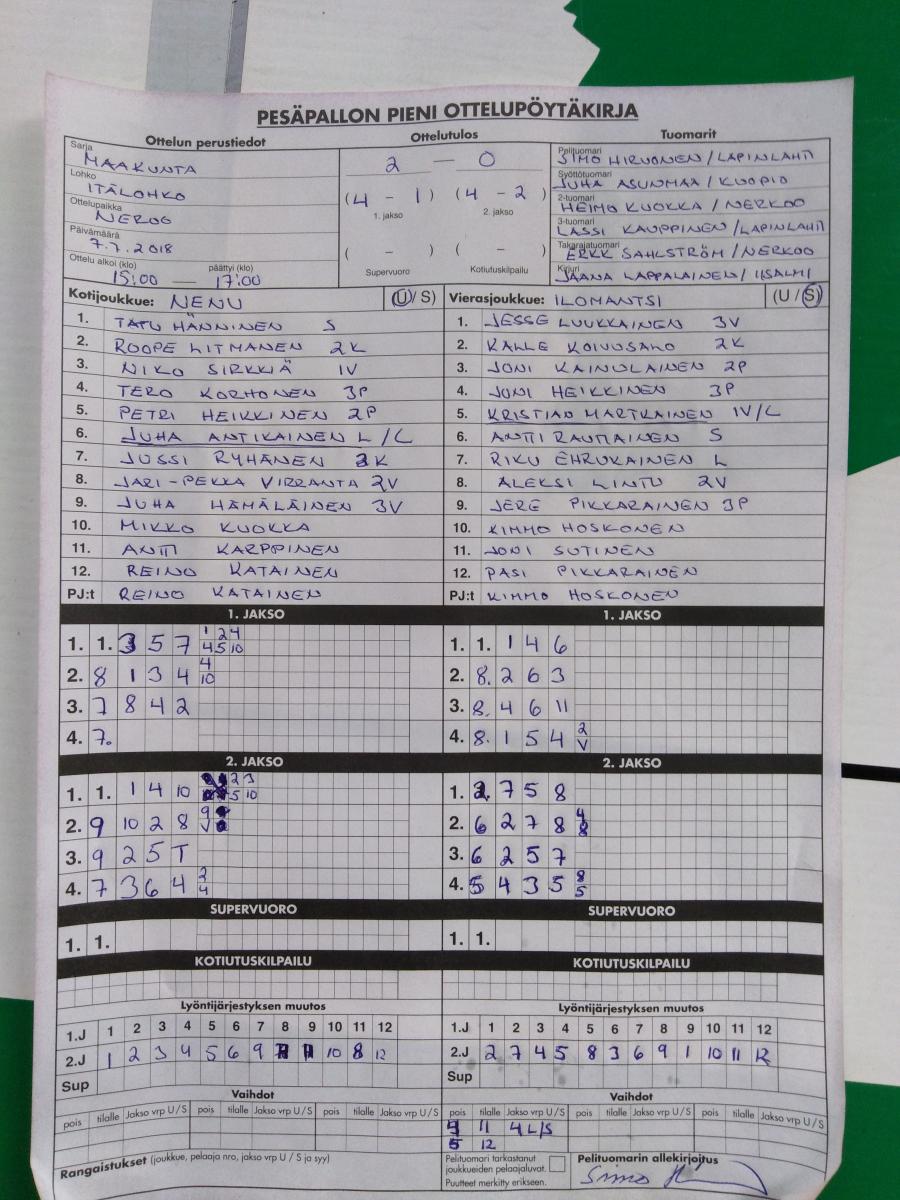 PESÄPALLON PIENI OTTELUPÖYTÄKIRJA
Ottelun perustiedot Ottelutulos Tuomarit
Sarja MAAKUNTA
Lohko ITÄLOHKO
Ottelupaikka NEROO
Päivämäärä 7.7.2018
Ottelu alkoi (klo) päättyi (klo)
15:00 — 17:00
2 — 0
(4 - 1) (4 - 2)
1. jakso 2. jakso
( - ) ( - )
Supervuoro Kotiutuskilpailu
Pelituomari SIMO HIRVONEN / LAPINLAHTI
Syöttötuomari JUHA ASUNMAA / KUOPIO
2-tuomari HEIMO KUOKKA / NERKOO
3-tuomari LASSI KAUPPINEN / LAPINLAHTI
Takarajatuomari ERKK SAHLSTRÖM / NERKOO
Kirjuri JAANA LAPPALAINEN / IISALMI
Kotijoukkue: NENU (U / S)
1. TATU HÄNNINEN S
2. ROOPE LITMANEN 2K
3. NIKO SIRKKIÄ 1V
4. TERO KORHONEN 3P
5. PETRI HEIKKINEN 2P
6. JUHA ANTIKAINEN L / C
7. JUSSI RYHÄNEN 3K
8. JARI-PEKKA VIRRANTA 2V
9. JUHA HÄMÄLÄINEN 3V
10. MIKKO KUOKKA
11. ANTTI KARPPINEN
12. REINO KATAINEN
PJ:t REINO KATAINEN
Vierasjoukkue: ILOMANTSI (U / S)
1. JESSE LUUKKAINEN 3V
2. KALLE KOIVUSALO 2K
3. JONI KAINULAINEN 2P
4. JONI HEIKKINEN 3P
5. KRISTIAN MARTKAINEN 1V/C
6. ANTTI RAUTIAINEN S
7. RIKU EHRUKAINEN L
8. ALEKSI LINTU 2V
9. JERE PIKKARAINEN 3P
10. KIMMO HOSKONEN
11. JONI SUTINEN
12. PASI PIKKARAINEN
PJ:t KIMMO HOSKONEN
1. JAKSO 1. JAKSO
1. 1. 3 5 7 1 2 4
4 5 10
2. 8 1 3 4 4
10
3. 7 8 4 2
4. 7.
1. 1. 1 4 6
2. 8. 2 6 3
3. 8. 4 6 11
4. 8. 1 5 4 2
V
2. JAKSO 2. JAKSO
1. 1. 1 4 10 2 3
5 10
2. 9 10 2 8 9
V
3. 9 2 5 T
4. 7 3 6 4 2
4
1. 2. 7 5 8
2. 6 2 7 8 4
8
3. 6 2 5 7
4. 5 4 3 5 8
5
SUPERVUORO SUPERVUORO
1. 1. 1. 1.
KOTIUTUSKILPAILU KOTIUTUSKILPAILU
Lyöntijärjestyksen muutos Lyöntijärjestyksen muutos
1.J 1 2 3 4 5 6 7 8 9 10 11 12 1.J 1 2 3 4 5 6 7 8 9 10 11 12
2.J 1 2 3 4 5 6 9 7 11 10 8 12 2.J 2 7 4 5 8 3 6 9 1 10 11 12
Sup Sup
Vaihdot Vaihdot
pois tilalle Jakso vrp U / S pois tilalle Jakso vrp U / S pois tilalle Jakso vrp U / S pois tilalle Jakso vrp U / S pois tilalle Jakso vrp U / S pois tilalle Jakso vrp U / S
11 4L/S
5 12
Rangaistukset (joukkue, pelaaja nro, jakso vrp U / S ja syy)
Pelituomari tarkastanut
joukkueiden pelaajaluvat.
Puutteet merkitty erikseen.
Pelituomarin allekirjoitus
Simo